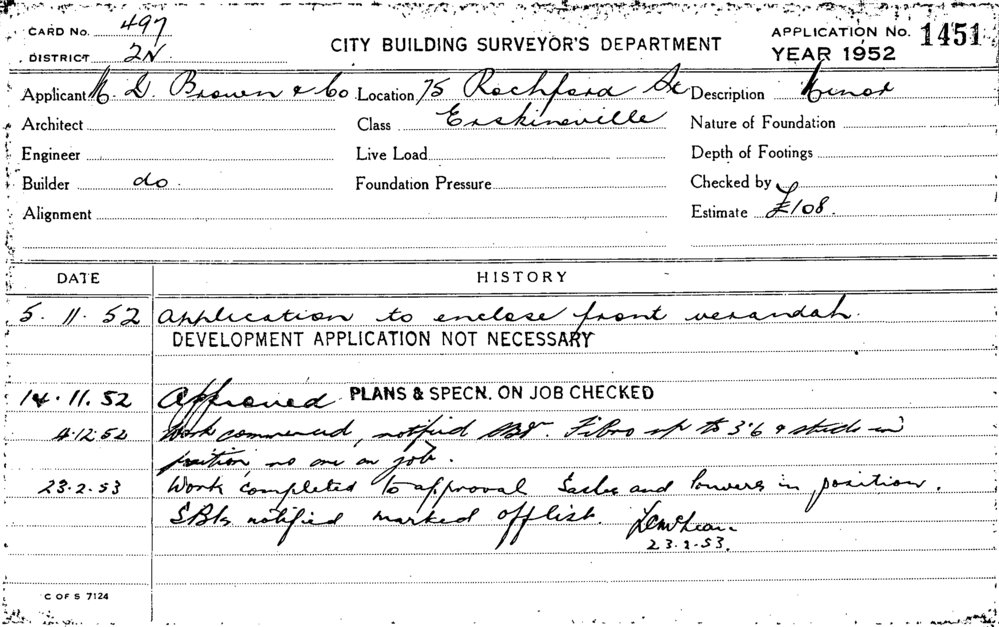 CARD NO. 497
DISTRICT 2N
CITY BUILDING SURVEYOR'S DEPARTMENT
APPLICATION NO. 1451
YEAR 1952
Applicant M. D. Brown & Co Location 75 Rochford St Description Minor
Architect Class Erskineville Nature of Foundation
Engineer Live Load Depth of Footings
Builder do Foundation Pressure Checked by
Alignment Estimate £108.
DATE HISTORY
5.11.52 Application to enclose front verandah.
DEVELOPMENT APPLICATION NOT NECESSARY
14.11.52 Approved PLANS & SPECN. ON JOB CHECKED
4.12.52 Work commenced, notified Fibro up to 3'6 & studs in
position, no one on job.
23.2.53 Work completed to approval Sashes and louvers in position.
notified marked off list.
23.2.53.
C OF S 7124